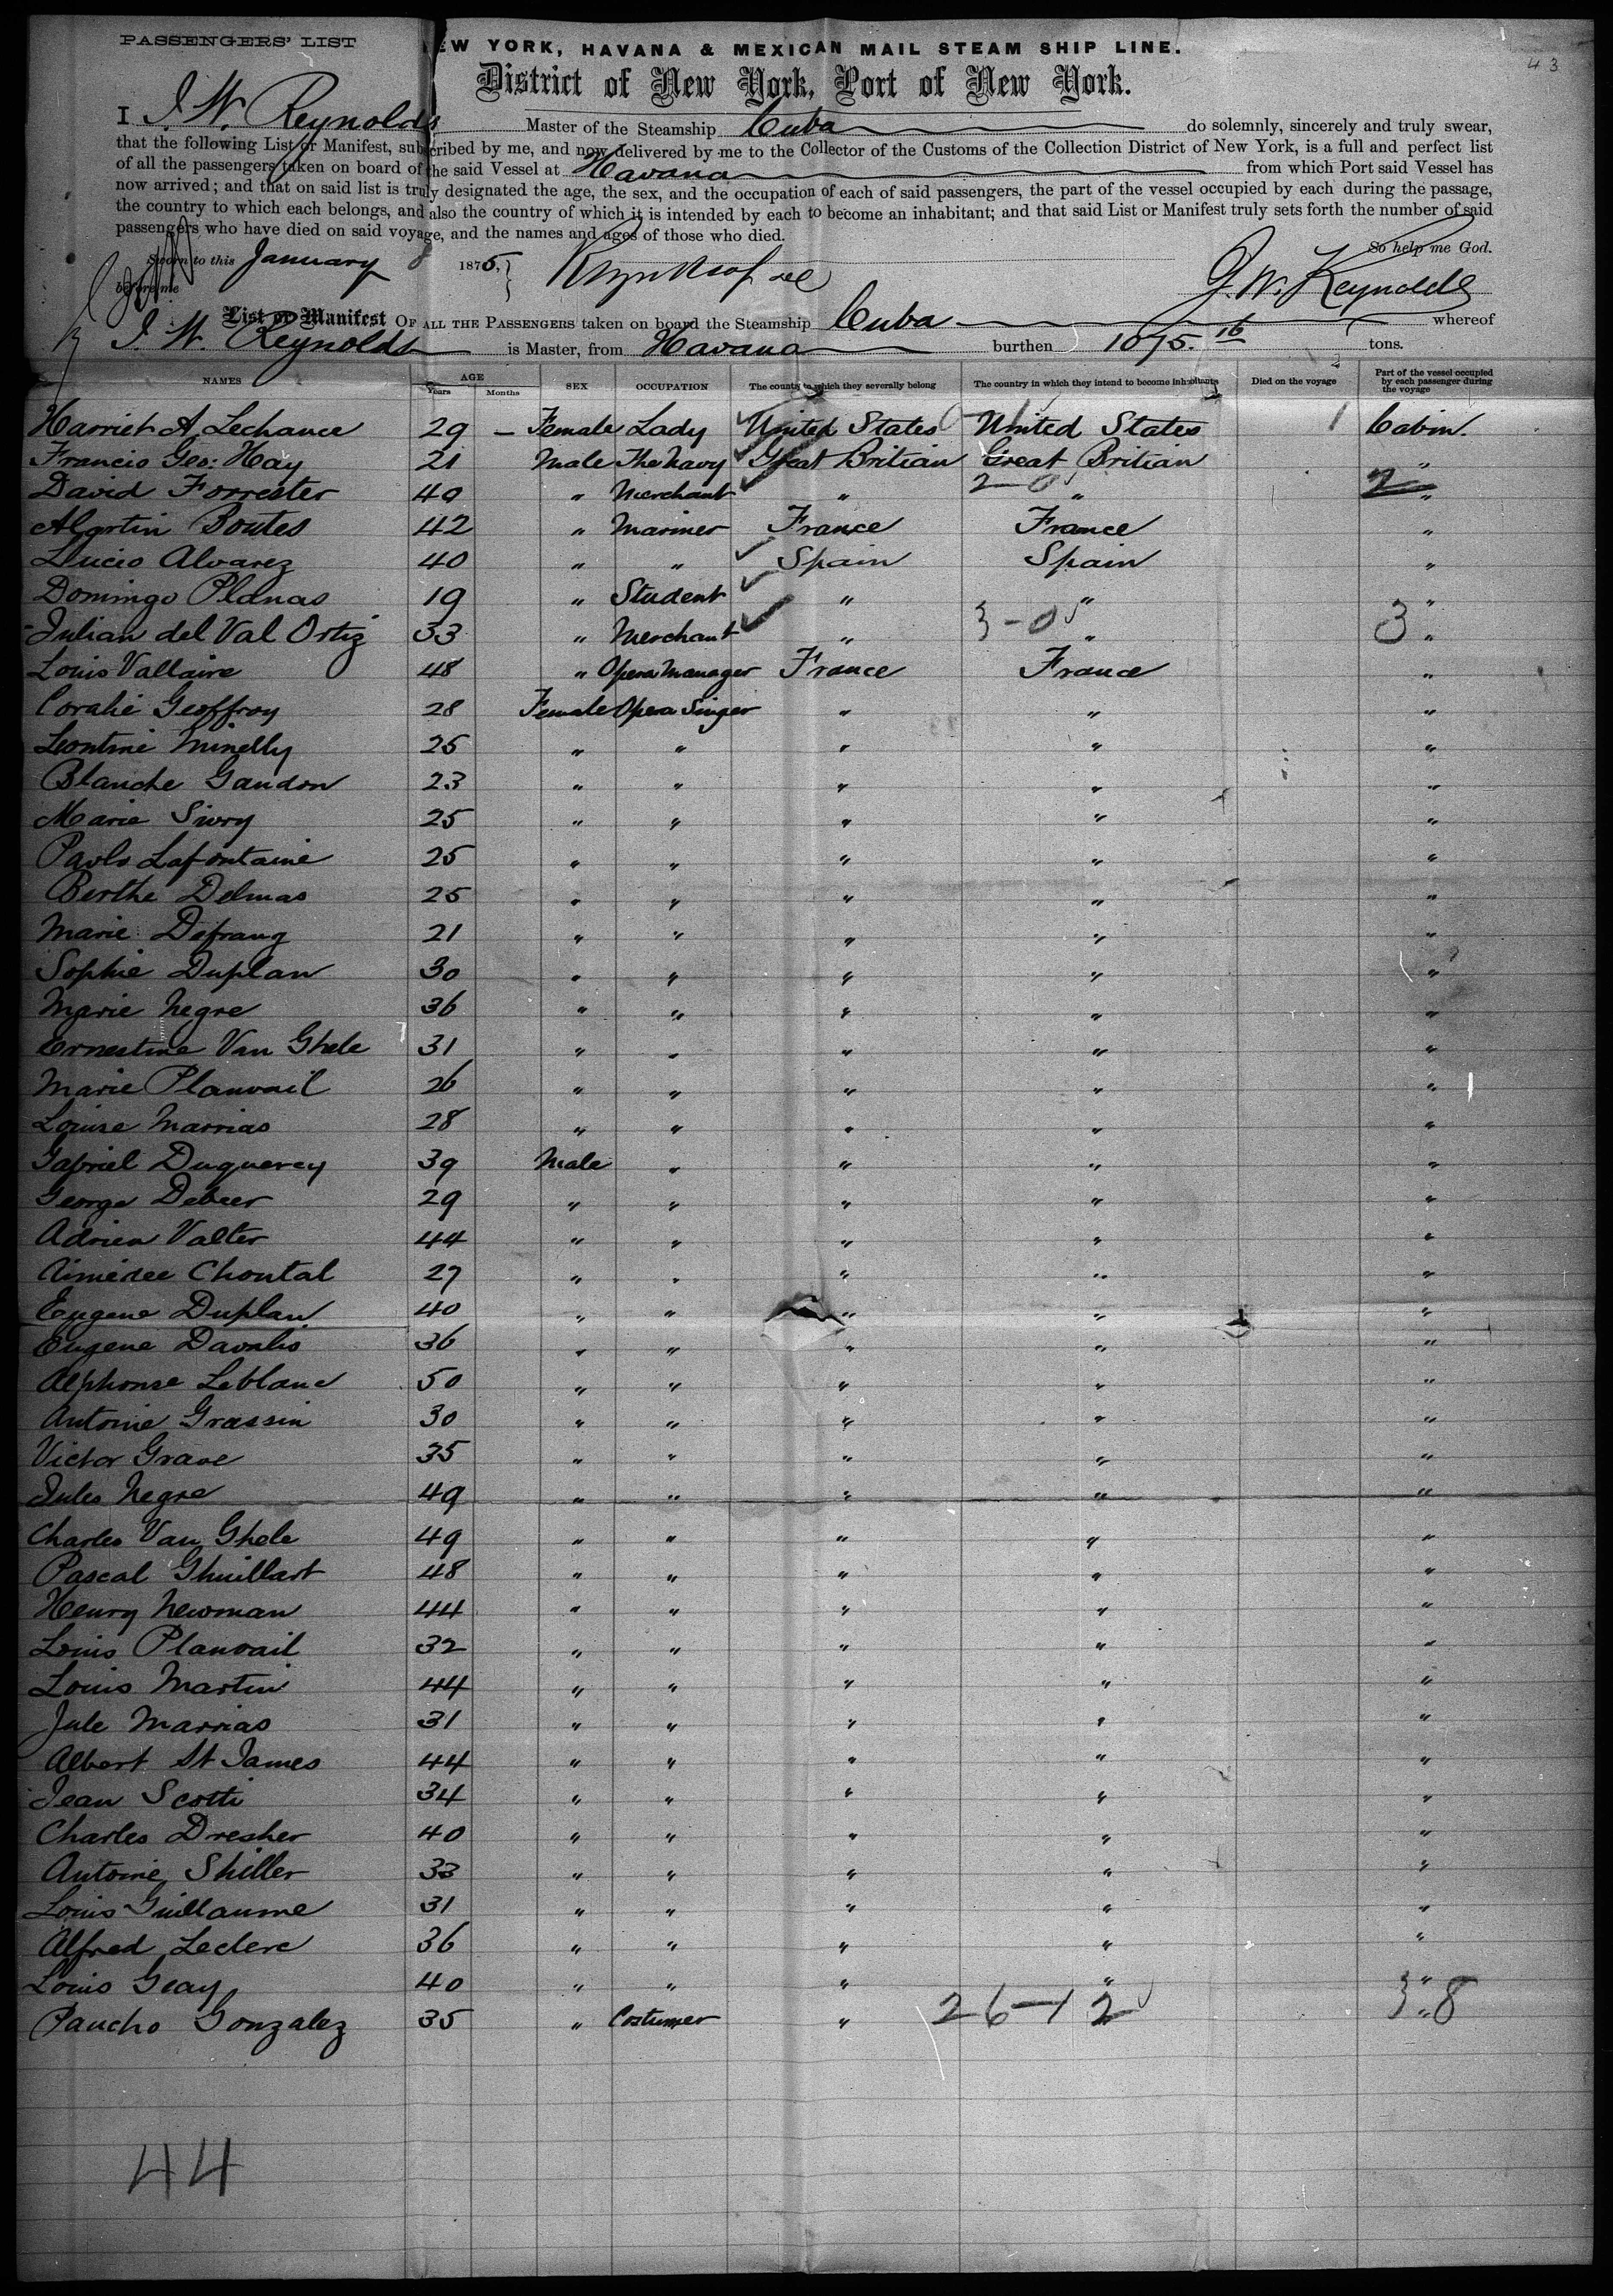 43
PASSENGERS' LIST
NEW YORK, HAVANA & MEXICAN MAIL STEAM SHIP LINE.
District of New York, Port of New York.
I J. W. Reynolds Master of the Steamship Cuba do solemnly, sincerely and truly swear,
that the following List or Manifest, subscribed by me, and now delivered by me to the Collector of the Customs of the Collection District of New York, is a full and perfect list
of all the passengers taken on board of the said Vessel at Havana from which Port said Vessel has
now arrived; and that on said list is truly designated the age, the sex, and the occupation of each of said passengers, the part of the vessel occupied by each during the passage,
the country to which each belongs, and also the country of which it is intended by each to become an inhabitant; and that said List or Manifest truly sets forth the number of said
passengers who have died on said voyage, and the names and ages of those who died.
So help me God.
Sworn to this January 8 1875,
before me
J. W. Reynolds
List or Manifest OF ALL THE PASSENGERS taken on board the Steamship Cuba whereof
J. W. Reynolds is Master, from Havana burthen 1075.16 tons.
NAMES AGE Years Months SEX OCCUPATION The county to which they severally belong The country in which they intend to become inhabitants Died on the voyage Part of the vessel occupied by each passenger during the voyage
Harriet A. Lechance 29 – Female Lady United States United States 1 Cabin.
Francis Geo: Hay 21 Male The Navy Great Britian Great Britian "
David Forrester 40 " Merchant " 2-0 " 2 "
Martin Boutes 42 " Mariner France France "
Lucio Alvarez 40 " " Spain Spain "
Domingo Planas 19 " Student " " "
Julian del Val Ortiz 33 " Merchant " 3-0 " 3 "
Louis Vallaire 48 " Opera Manager France France "
Coralie Geoffroy 28 Female Opera Singer " " "
Leontine Minelly 25 " " " " "
Blanche Gandon 23 " " " " "
Marie Sivry 25 " " " " "
Paolo Lafontaine 25 " " " " "
Berthe Delmas 25 " " " " "
Marie Defrang 21 " " " " "
Sophie Duplan 30 " " " " "
Marie Negre 36 " " " " "
Ernestine Van Ghele 31 " " " " "
Marie Planvail 26 " " " " "
Louise Marrias 28 " " " " "
Gabriel Duquerey 39 Male " " " "
George Debeer 29 " " " " "
Adrien Valter 44 " " " " "
Chontal 27 " " " " "
Eugene Duplan 40 " " " " "
Eugene Davalis 36 " " " " "
Alphonse Leblanc 50 " " " " "
Antoine Grassin 30 " " " " "
Victor Grave 35 " " " " "
Jules Negre 49 " " " " "
Charles Van Ghele 49 " " " " "
Pascal Ghuillart 48 " " " " "
Henry Newman 44 " " " " "
Louis Planvail 32 " " " " "
Louis Martin 44 " " " " "
Jule Marrias 31 " " " " "
Albert St James 44 " " " " "
Jean Scotti 34 " " " " "
Charles Dresher 40 " " " " "
Antoine Shiller 33 " " " " "
Louis Guillaume 31 " " " " "
Alfred Leclerc 36 " " " " "
Louis Geay 40 " " " " "
Pancho Gonzalez 35 " Costumer " 26-12 38 "
44